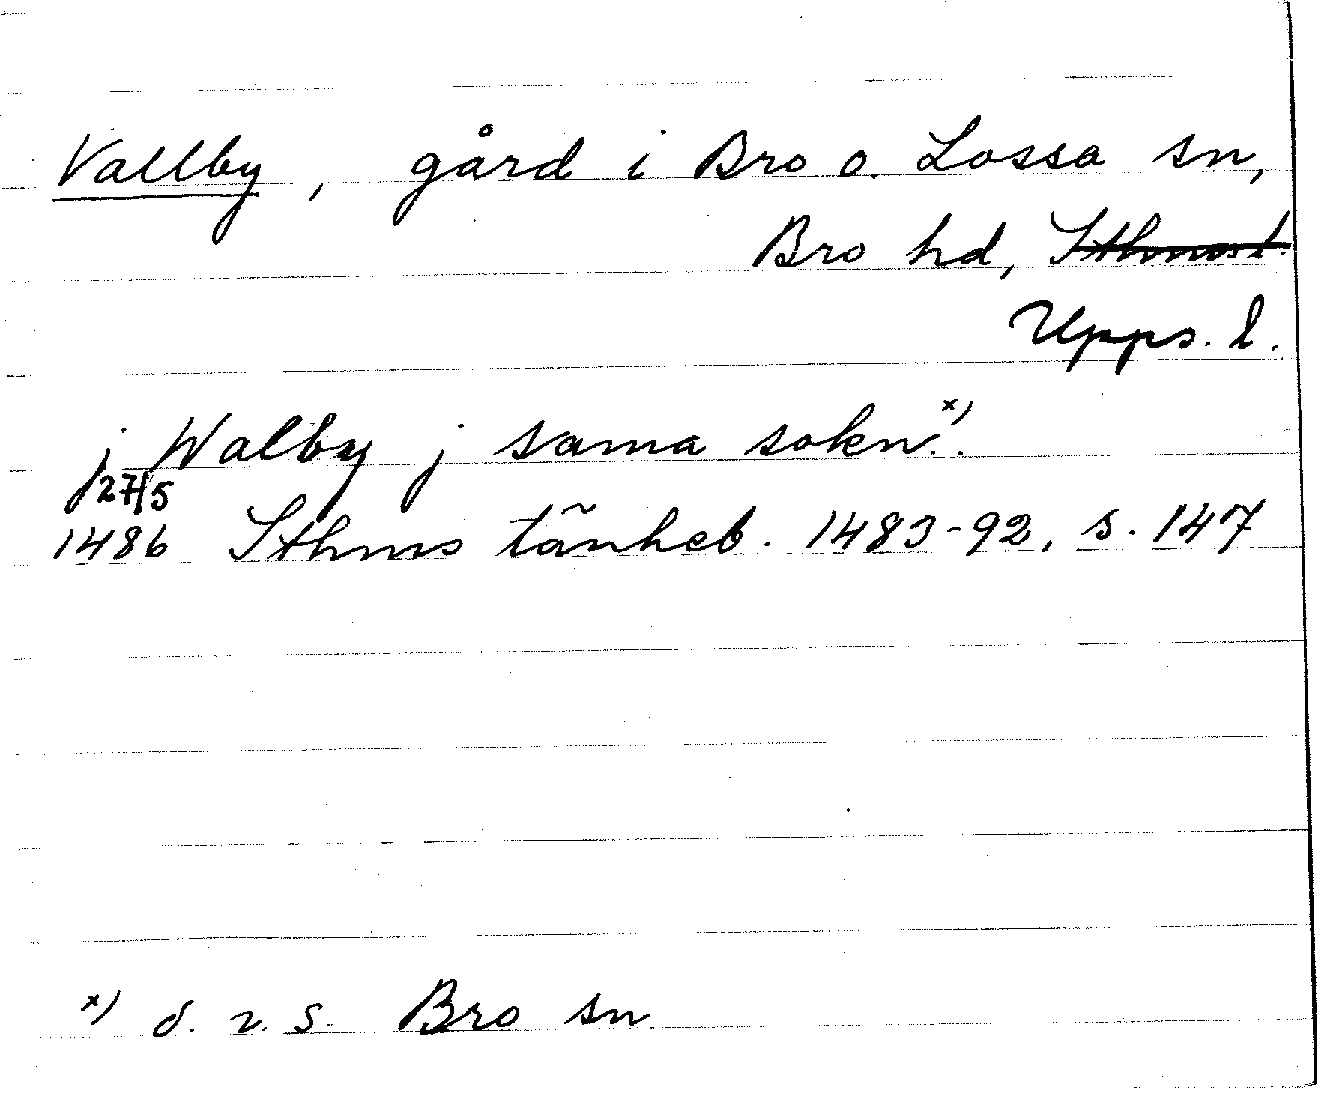 Vallby, gård i Bro o. Lossa sn,
Bro hd, Sthms l.
Upps. l.
j Walby j sama sokn x).
27/5
1486 Sthms tänkeb. 1483-92, s. 147
x) d. v. s. Bro sn